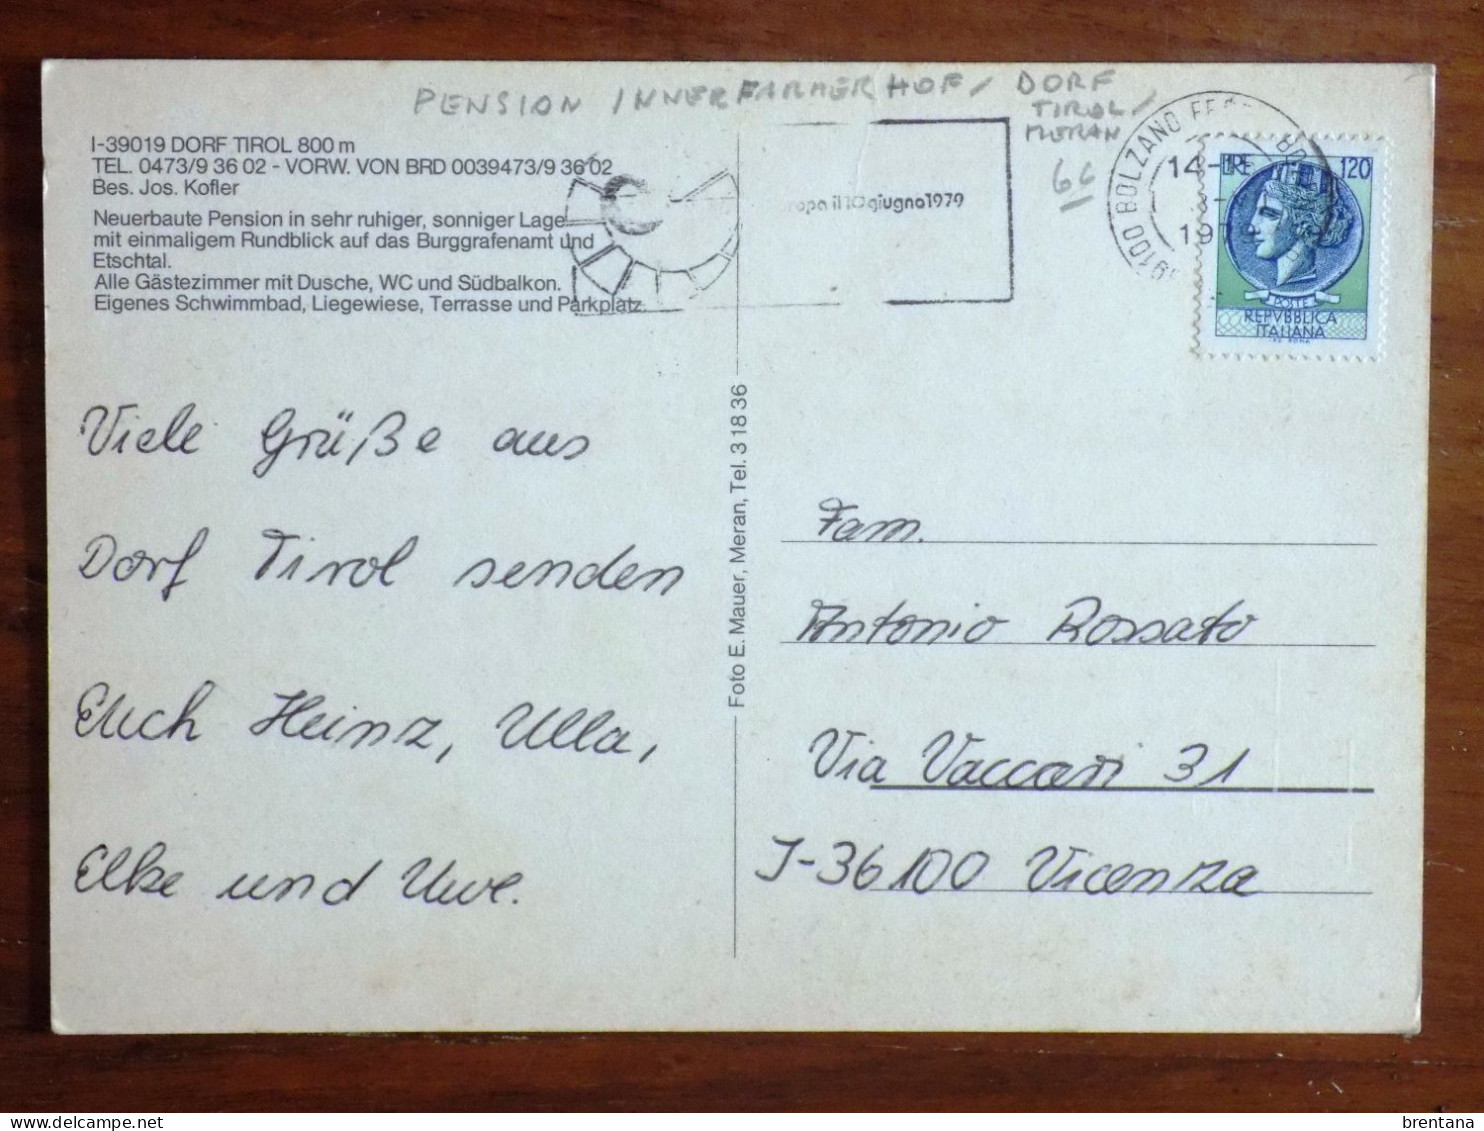 PENSION INNERFARMERHOF / DORF
TIROL /
MERAN
6G
I-39019 DORF TIROL 800 m
TEL. 0473/9 36 02 - VORW. VON BRD 0039473/9 36 02
Bes. Jos. Kofler
Neuerbaute Pension in sehr ruhiger, sonniger Lage
mit einmaligem Rundblick auf das Burggrafenamt und
Etschtal.
Alle Gästezimmer mit Dusche, WC und Südbalkon.
Eigenes Schwimmbad, Liegewiese, Terrasse und Parkplatz.
il 10 giugno 1979
39100 BOLZANO
14-
LIRE 120
POSTE
REPVBBLICA
ITALIANA
Viele Grüße aus
Dorf Tirol senden
Euch Heinz, Ulla,
Elke und Uwe.
Foto E. Mauer, Meran, Tel. 3 18 36
Fam.
Antonio Rossato
Via Vaccari 31
I-36100 Vicenza
brentana